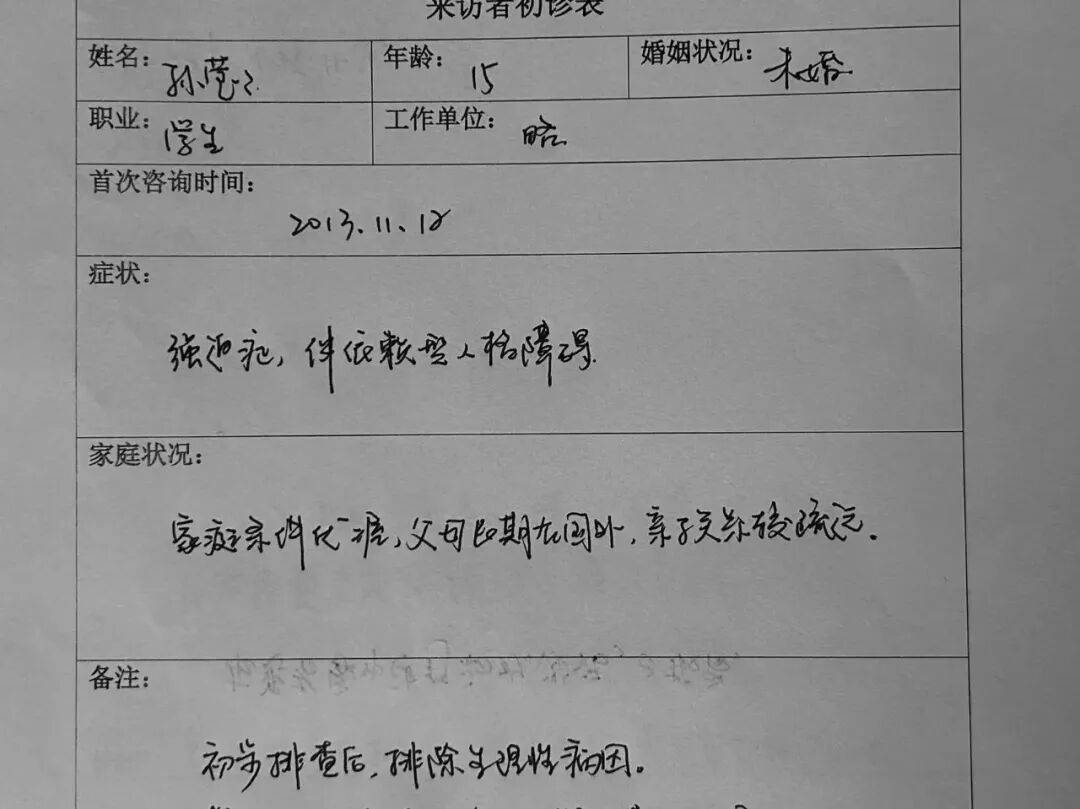 来访者初诊表
姓名: 孙莹之 年龄: 15 婚姻状况: 未婚
职业: 学生 工作单位: 略
首次咨询时间:
2013.11.12
症状:
强迫症,伴依赖型人格障碍.
家庭状况:
家庭条件优渥,父母长期在国外,亲子关系较疏远.
备注:
初步排查后,排除生理性病因.